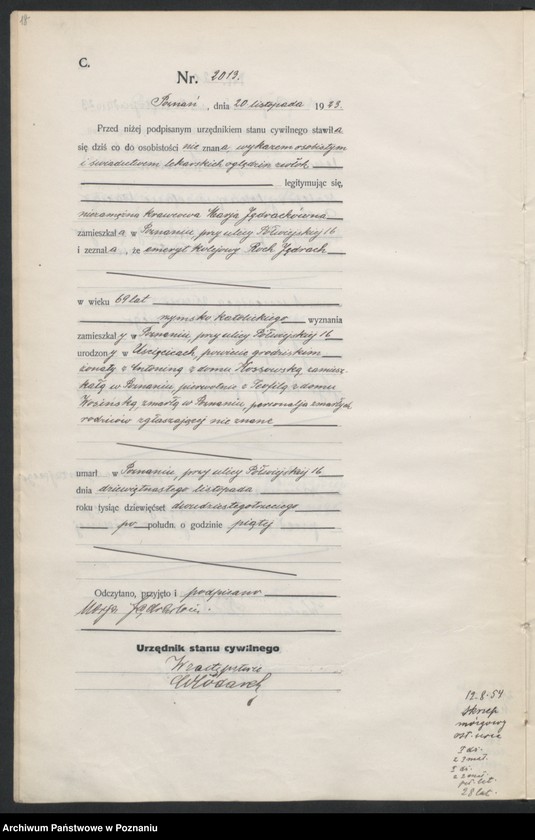 18
C.
Nr. 2013.
Poznań, dnia 20 listopada 1923.
Przed niżej podpisanym urzędnikiem stanu cywilnego stawiła
się dziś co do osobistości nie znana, wykazem osobistym
i świadectwem lekarskich oględzin zwłok
legitymując się,
niezamężna krawcowa Marja Jędrachówna
zamieszkała w Poznaniu, przy ulicy Półwiejskiej 16
i zeznała, że emeryt kolejowy Roch Jędrach
w wieku 69 lat
rzymsko katolickiego wyznania
zamieszkały w Poznaniu, przy ulicy Półwiejskiej 16
urodzony w Uścięcicach, powiecie grodziskim
żonaty z Antoniną z domu zamiesz-
kałą w Poznaniu, pierwotnie z Teofilą z domu
zmarłą w Poznaniu, personalja zmarłych
rodziców zgłaszającej nie znane
umarł w Poznaniu, przy ulicy Półwiejskiej 16
dnia dziewiętnastego listopada
roku tysiąc dziewięćset dwudziestegotrzeciego
po połudn. o godzinie piątej
Odczytano, przyjęto i podpisano
Marja
Urzędnik stanu cywilnego
W zastępstwie
Włodarek
12.8.54
skrzep
mózgowy
28 lat.
Archiwum Państwowe w Poznaniu